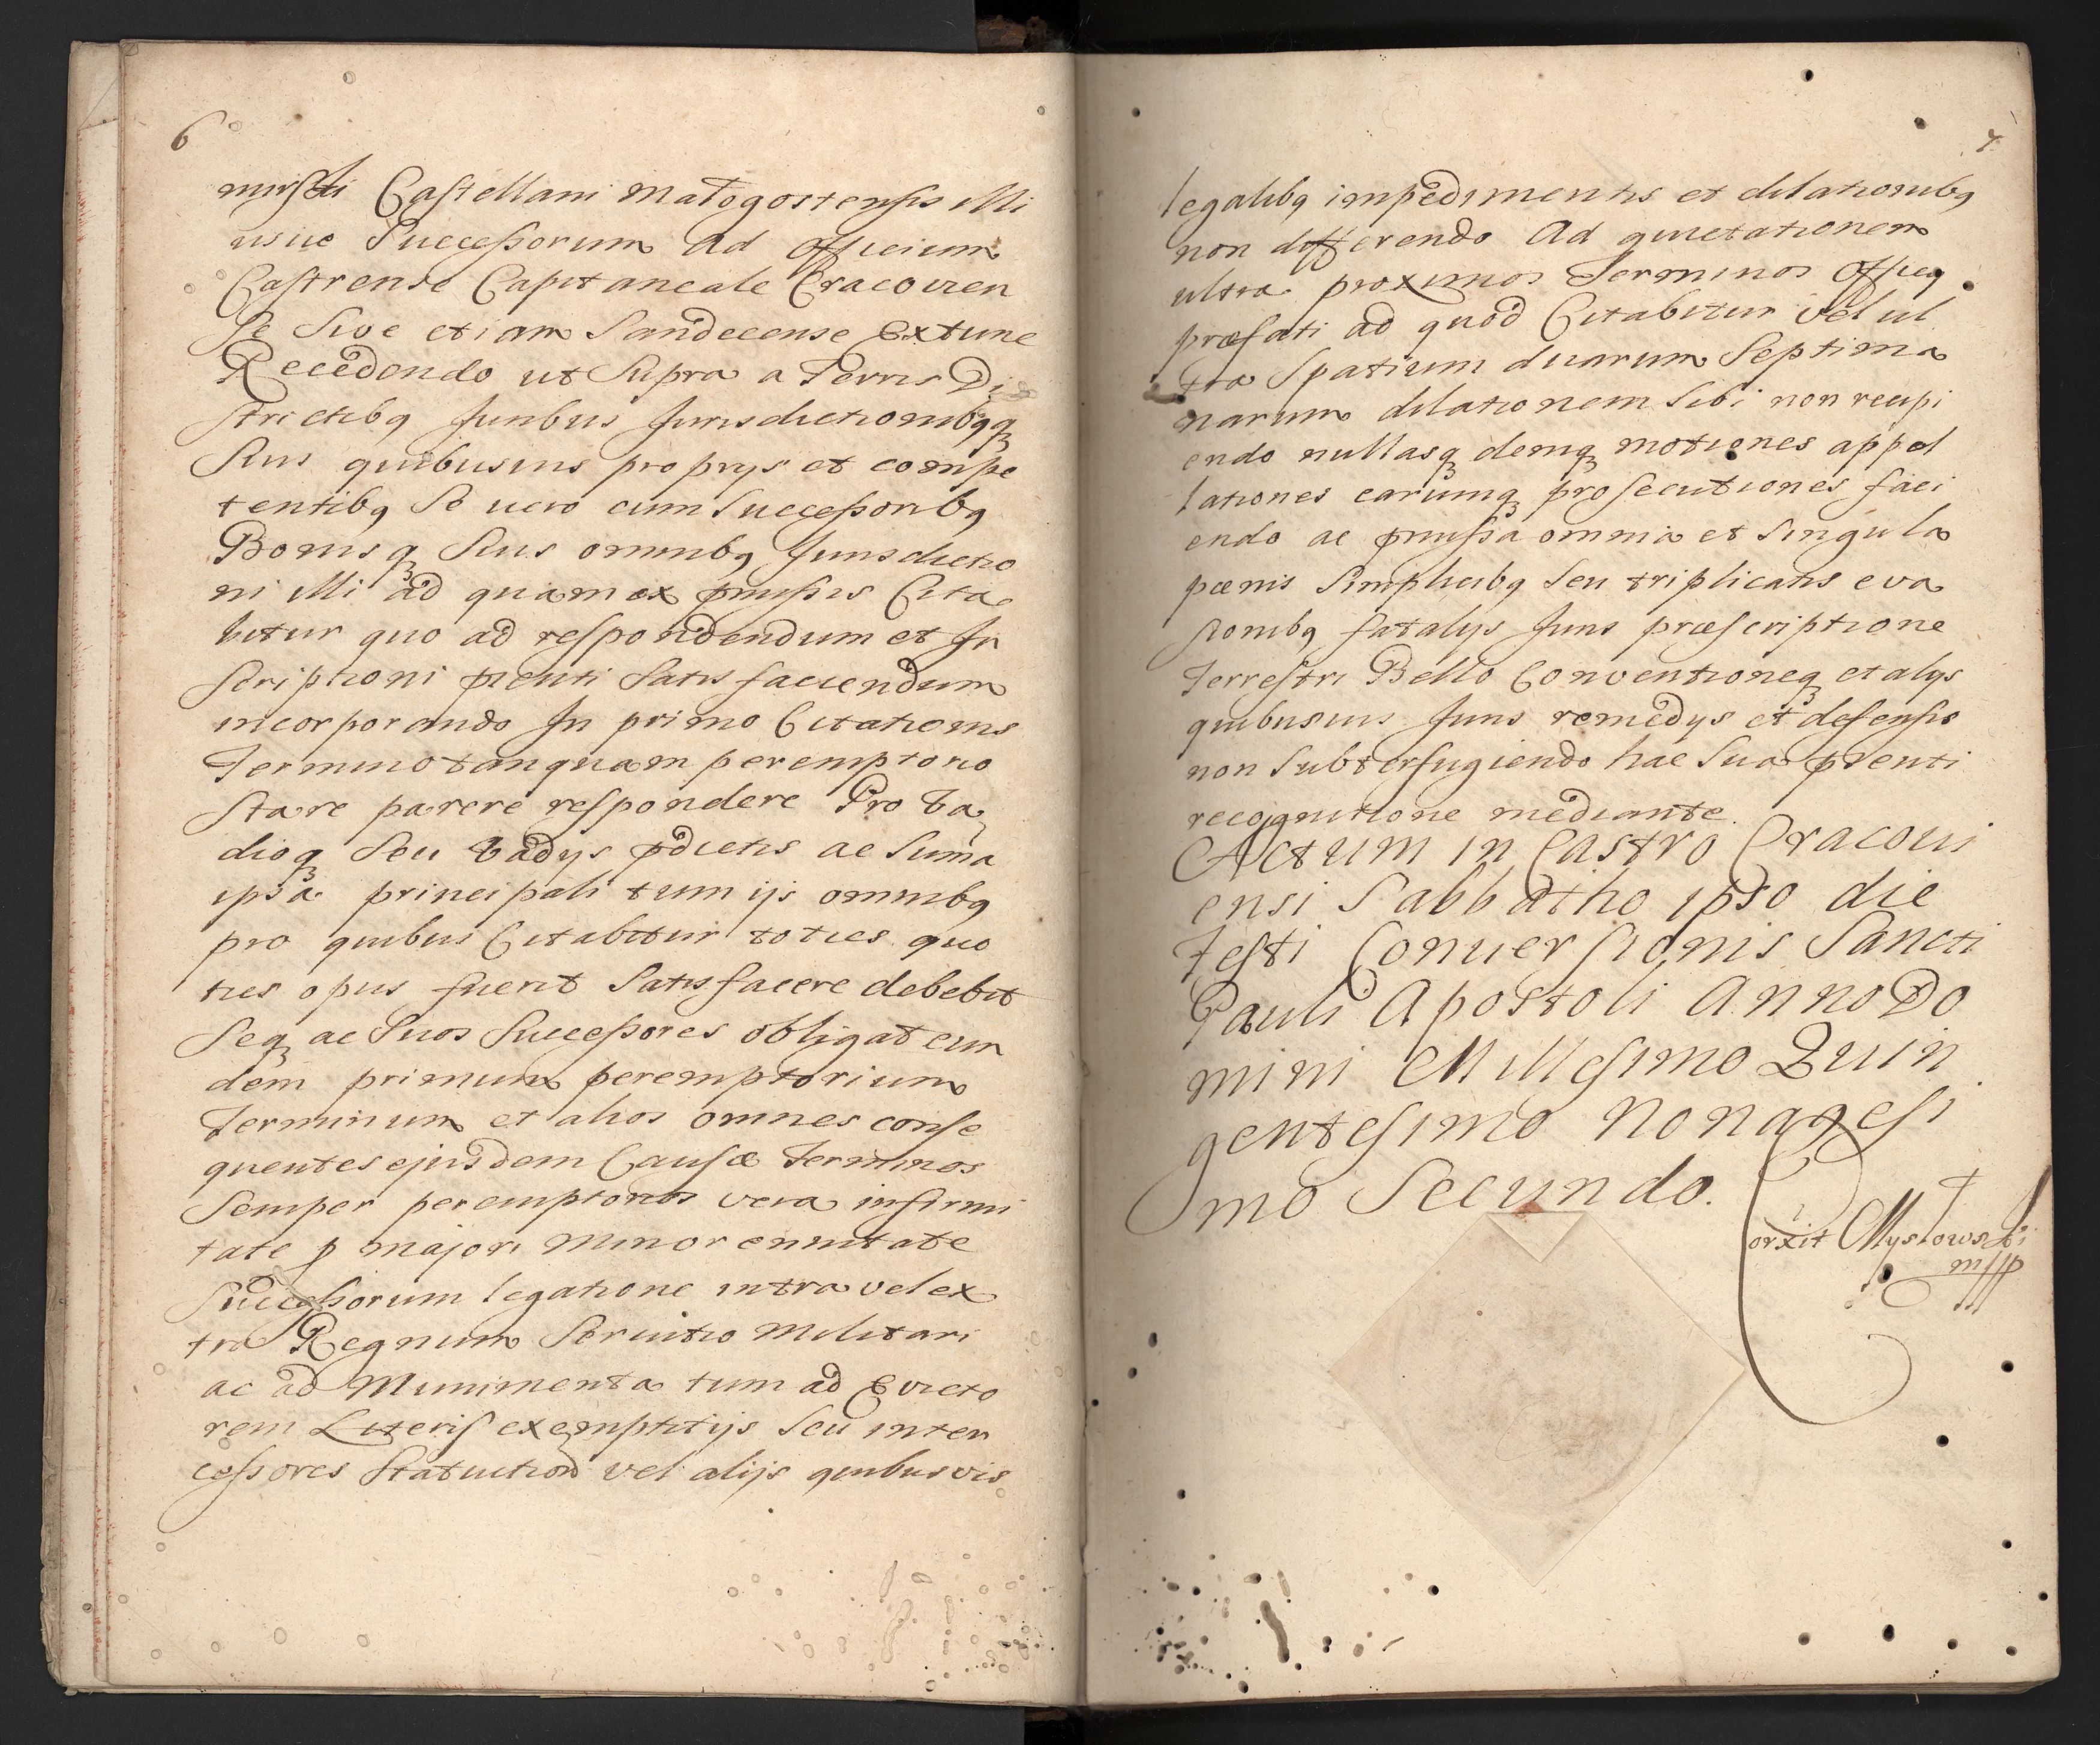 6
mirski Castellani Małogostensis Illi
usue Successorum Ad Officium
Castrense Capitaneale Cracovien
se Sive etiam Sandecense Extunc
Recedendo ut Supra a Terris Di
strictibq Juribus Jurisdictionibqq
Suis quibusuis proprys et compe
tentibq Se uero cum Successoribq
Bonisq Suis omnibq Jurisdictio
ni Illi ad quam ex pmissis Cita
bitur quo ad respondendum et In
scriptioni pnti Satis faciendum
incorporando In primo Citationis
Termino tanquam peremptorio
Stare parere respondere Pro Va
dioq Seu Vadys pdictis ac Suma
ipsa principali tum ijs omnibq
pro quibus Citabitur toties quo
ties opus fuerit Satisfacere debebit
Seq ac Suos Successores obligat eun
dem primum peremptorium
Terminum et alios omnes conse
quentes ejusdem Causæ Terminos
Semper peremptorios vera infirmi
tate p majori Minorennitate
Successorum legatione intra vel ex
tra Regnum Servitio Militari
ac ad Munimenta tum ad Evicto
rem Literis exemptitijs Seu inter
cessores Statuition vel alijs quibusvis
7
legalibq impedimentis et dilationibq
non differendo Ad quietationem
ultra proximos Terminos Officq
præfati ad quod Citabitur vel ul
tra Spatium duarum Septima
narum dilationem Sibi non recipi
endo nullasq demq motiones appel
lationes earumq prosecutiones faci
endo ac pmissa omnia et Singula
pœnis Simplicibq Seu triplicatis eva
sionibq fatalijs Juris præscriptione
Terrestri Bello Conventioneq et alys
quibusuis Juris remedys et defensis
non Subterfugiendo hac Sua pnti
recognitione mediante.
Actum in Castro Cracoui
ensi Sabbatho ipso die
Festi Conuersionis Sancti
Pauli Apostoli Anno Do
mini Millesimo Quin
gentesimo Nonagesi
mo Secundo.
corxit Mysłowski
mpp